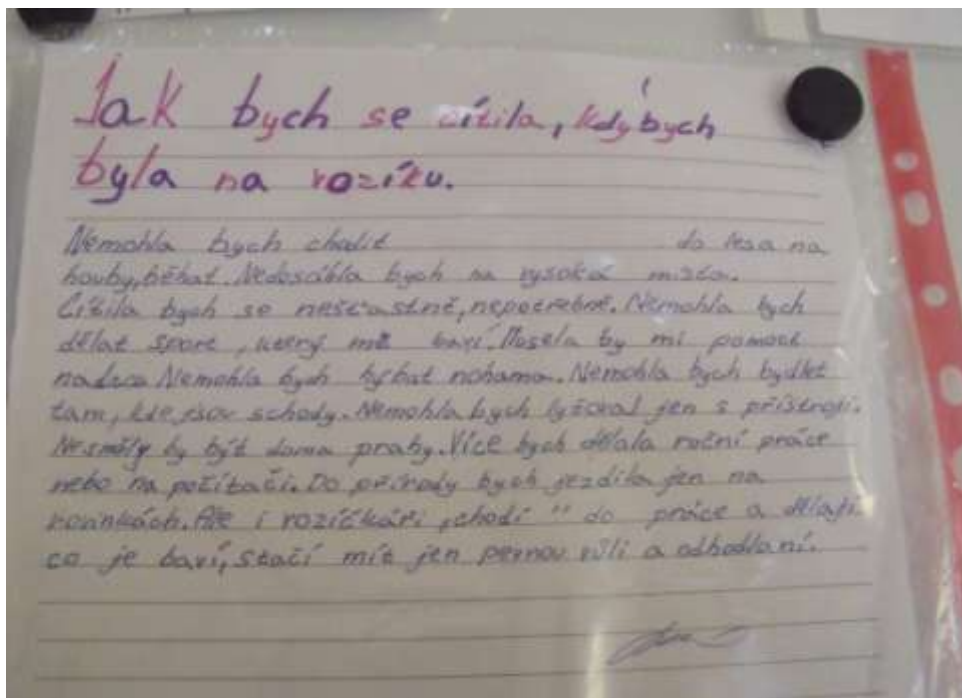 Jak bych se cítila, kdybych
byla na vozíku.
Nemohla bych chodit do lesa na
houby, běhat. Nedosáhla bych na vysoká místa.
Cítila bych se nešťastně, nepotřebně. Nemohla bych
dělat sport, který mě baví. Musela by mi pomoct
Nemohla bych hýbat nohama. Nemohla bych bydlet
tam, kde jsou schody. Nemohla bych lyžovat jen s přístroji.
Nesměly by být doma prahy. Více bych dělala ruční práce
nebo na počítači. Do přírody bych jezdila jen na
rovinkách. Ale i vozíčkáři „chodí" do práce a dělají
co je baví, stačí mít jen pevnou vůli a odhodlání.